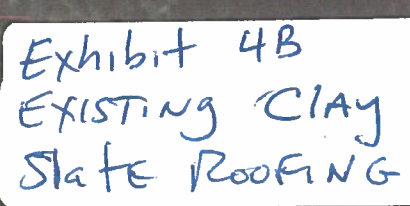 Exhibit 4B
EXISTING ClAy
SlatE ROOFING